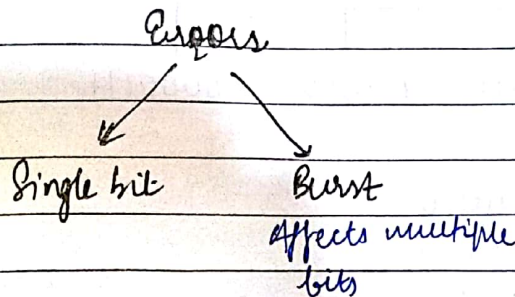 Errors
Single bit Burst
Affects multiple
bits